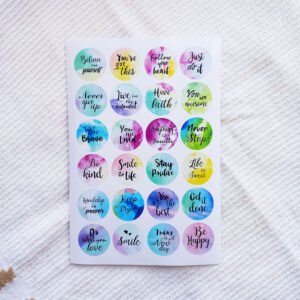 Believe in yourself
You've got this
Follow your heart
Just do it
Never give up
Live in the moment
Have faith
You are awesome
Brave
You Loved
Never Stop
Be kind
Smile to Life
Stay Positive
Life is Sweet
Knowledge is power
Keep trying
You the best
Get it done
Do what you love
Smile
Today is a New day
Be Happy